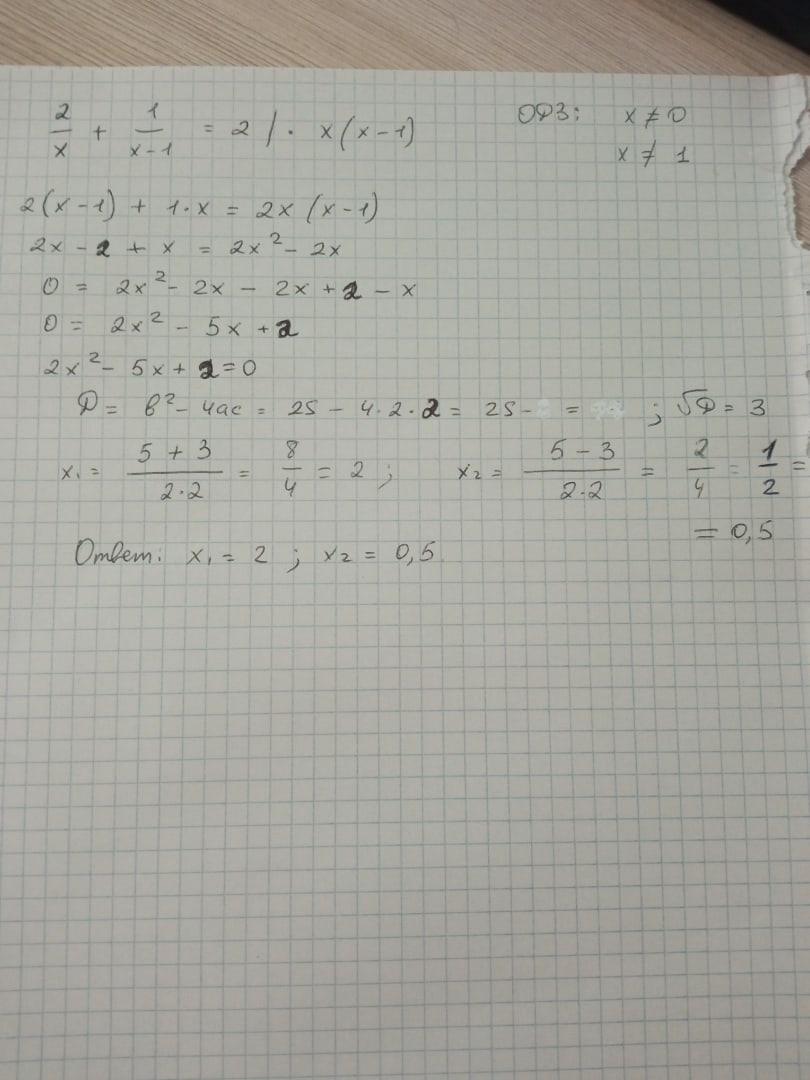 2/x + 1/(x-1) = 2 | · x(x-1) ОДЗ: x ≠ 0
x ≠ 1
2(x-1) + 1·x = 2x(x-1)
2x - 2 + x = 2x² - 2x
0 = 2x² - 2x - 2x + 2 - x
0 = 2x² - 5x + 2
2x² - 5x + 2 = 0
D = в² - 4ac = 25 - 4·2·2 = 25 - = ; √D = 3
x₁ = (5 + 3)/(2·2) = 8/4 = 2 ; x₂ = (5 - 3)/(2·2) = 2/4 = 1/2 =
= 0,5
Ответ: x₁ = 2 ; x₂ = 0,5